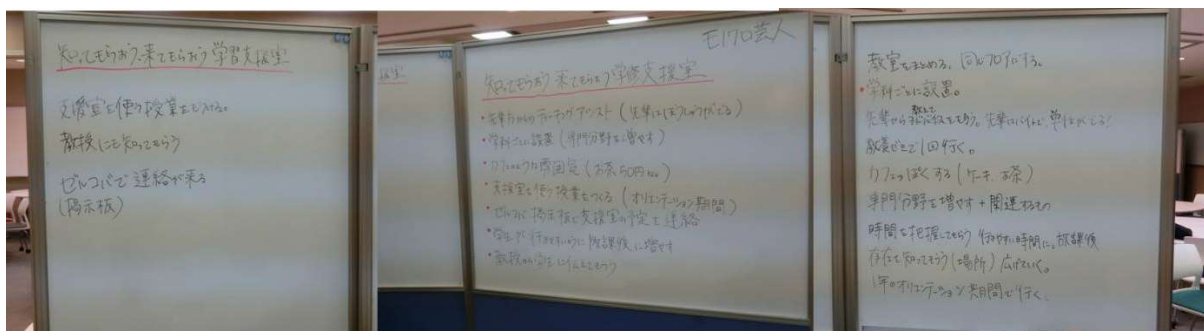 知ってもらおう、来てもらおう学習支援室
支援室を使う授業をもうける。
教授にも知ってもらう
ゼルコバで連絡が来る
(掲示板)
モノクロ芸人
知ってもらおう 来てもらおう 学修支援室
・先輩方からのティーチングアシスト (先輩には
・学科ごとに設置 (専門分野を増やす)
・カフェのような雰囲気 (お茶50円
・支援室を使う授業をつくる (オリエンテーション期間)
・ゼルコバ 掲示板で支援室の予定を連絡
・学生が行きやすいように放課後に増やす
・教授から学生に伝えてもらう
教室をまとめる、同じフロアにする。
・学科ごとに設置。
先輩から教えてもらう。先輩はバイトで、単位がでる!
教養ゼミで1回行く。
カフェっぽくする (ケーキ、お茶)
専門分野を増やす + 関連するもの
時間を把握してもらう 行きやすい時間に。放課後
存在を知ってもらう (場所) 広げていく。
1年のオリエンテーション期間で行く、